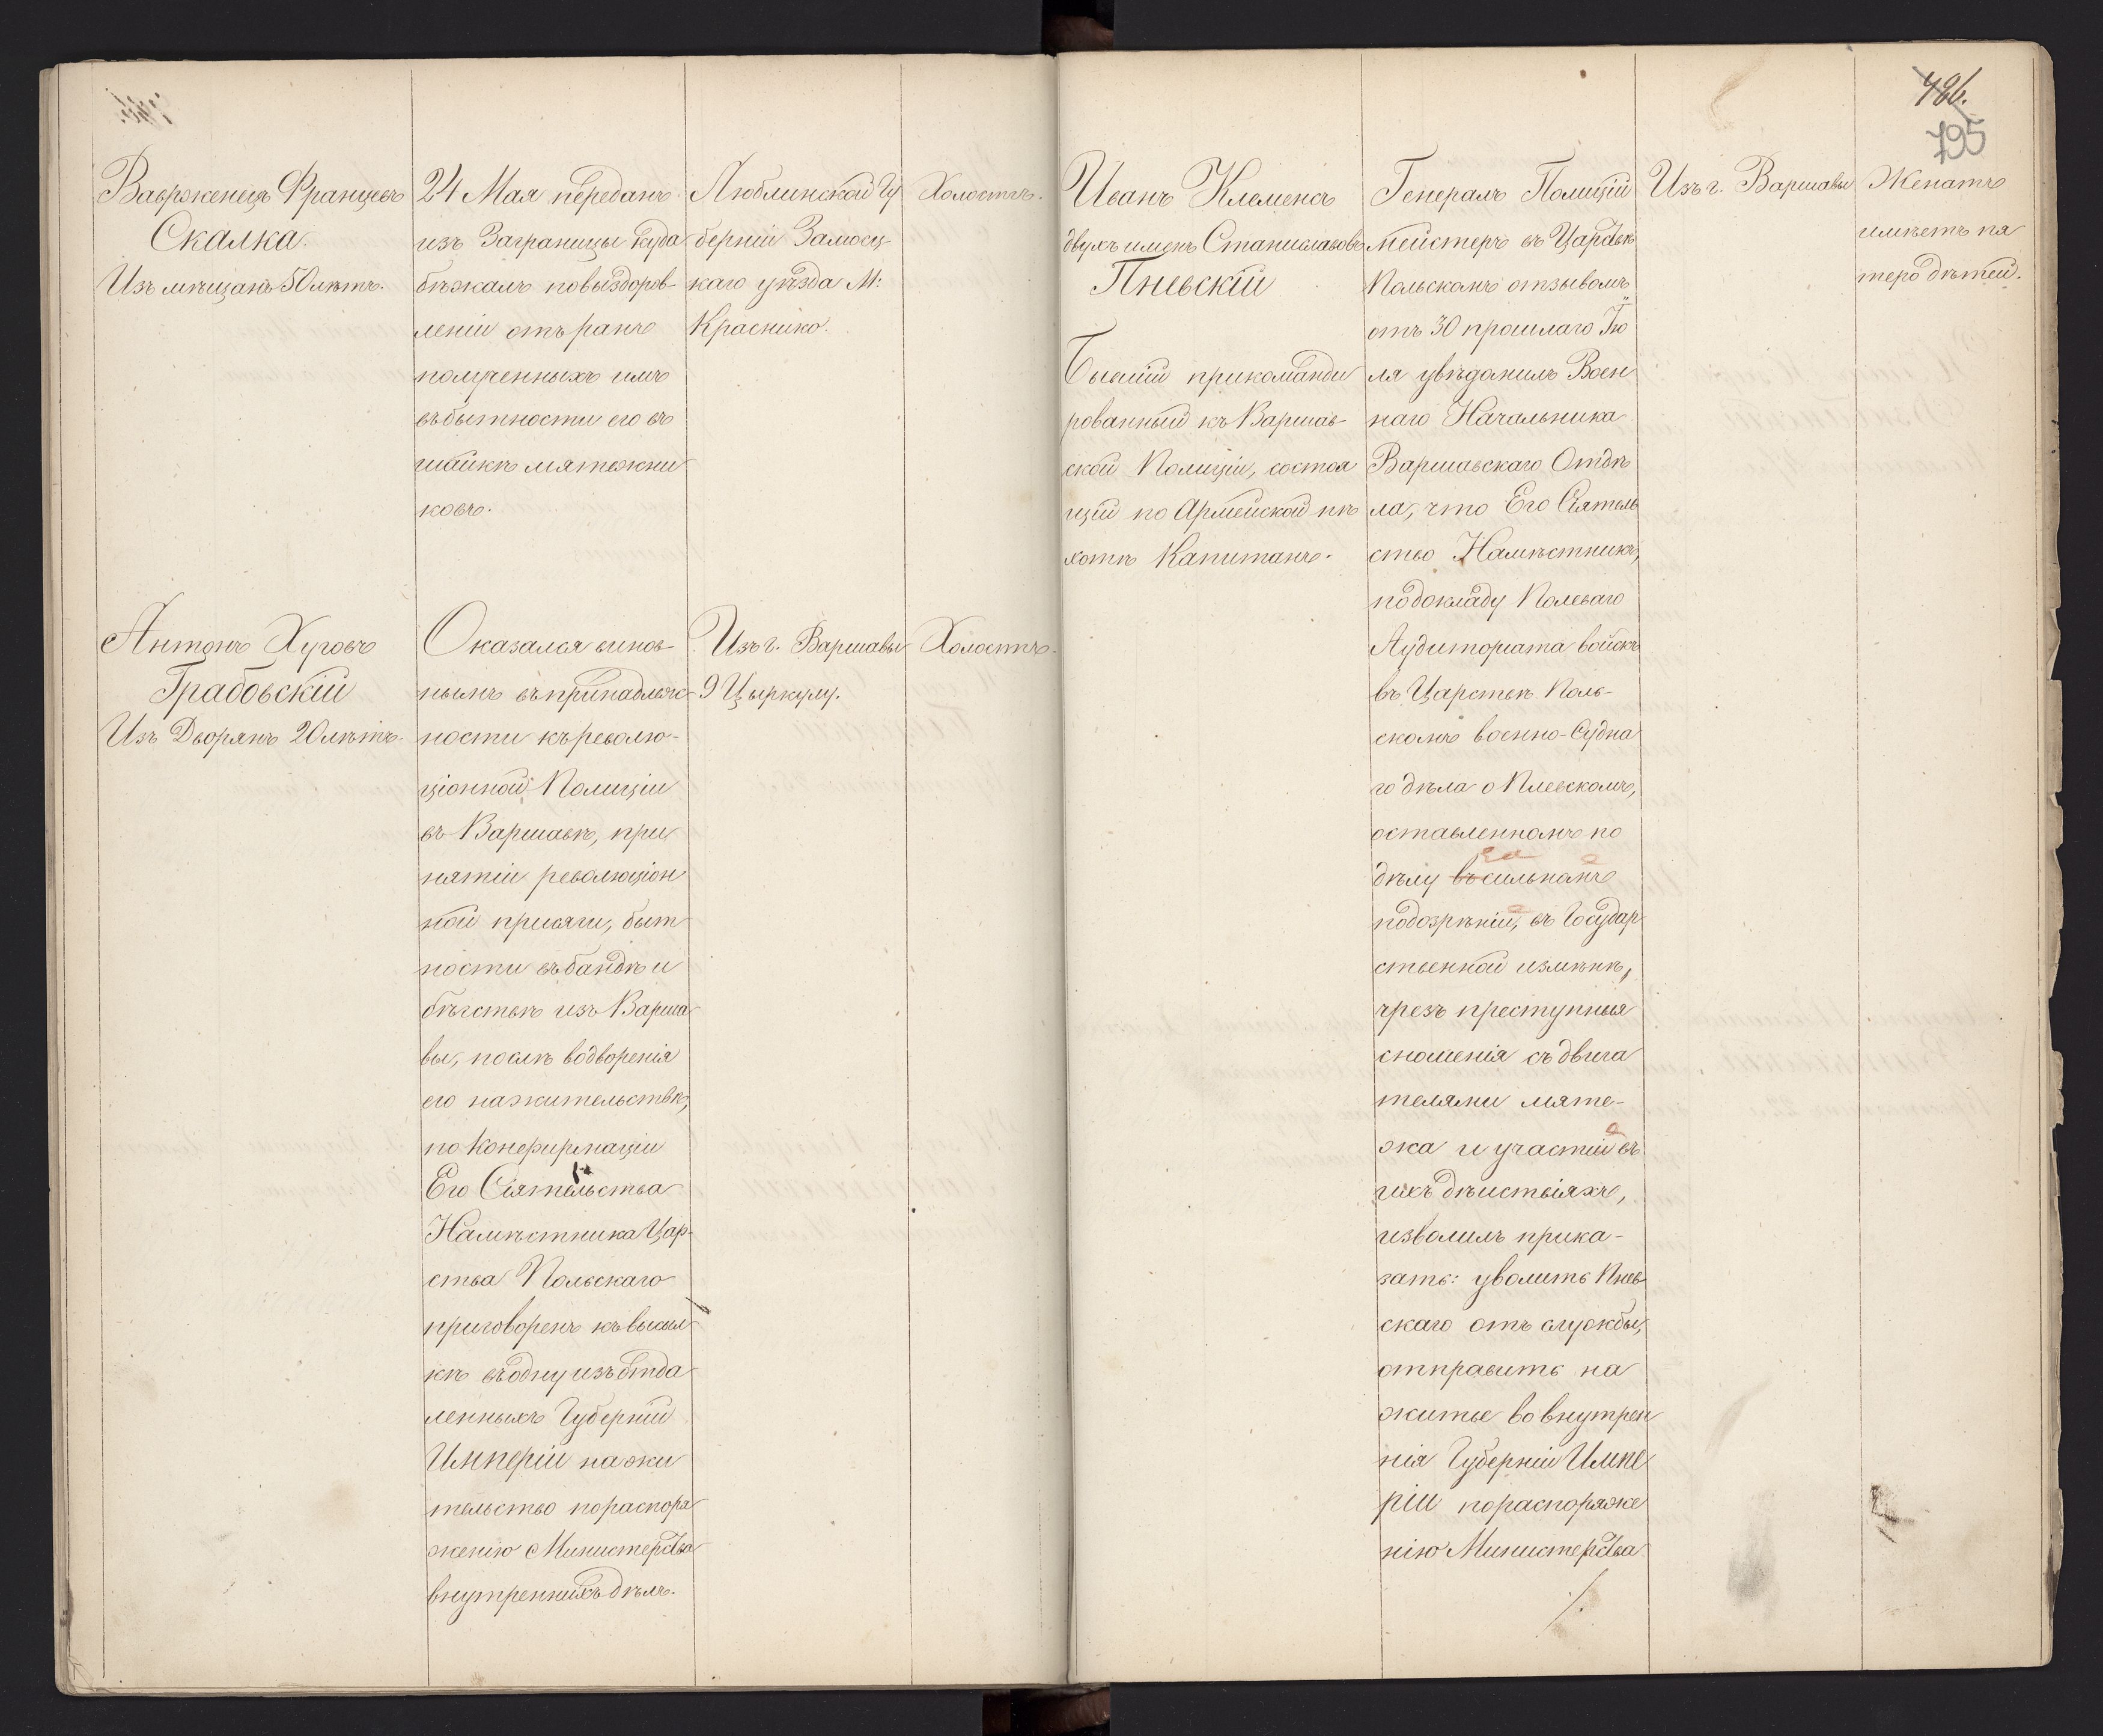 Вавржинецъ Францевъ
Скалка.
Изъ мѣщанъ 50 лѣтъ.
24 Мая переданъ
изъ Заграницы куда
бѣжалъ по выздоров-
леніи отъ ранъ
полученныхъ имъ
въ бытности его въ
шайкѣ мятежни
ковъ.
Люблинской Гу
берніи Замосц-
каго уѣзда М:
Краснико.
Холостъ.
Антонъ Хуговъ
Грабовскій
Изъ Дворянъ 20 лѣтъ.
Оказался винов-
нымъ въ принадлеж-
ности къ револю-
ціонной Полиціи
въ Варшавѣ, при
нятіи революціон
ной присяги, быт
ности въ бандѣ и
бѣгствѣ изъ Варша
вы, послѣ водворенія
его на жительствѣ,
по Конфирмаціи
Его Сіятельства
Намѣстника Цар-
ства Польскаго
приговоренъ къ высыл
кѣ въ одну изъ отда
ленныхъ Губерній
Имперіи на жи
тельство по распоря
женію Министерства
внутреннихъ дѣлъ.
Изъ г. Варшавы
9 Цыркулу.
Холостъ.
486.
795
Иванъ Клеменсъ
двухъ именъ Станиславовъ
Пневскій
Бывшій прикоманди
рованный къ Варшав-
ской Полиціи, состоя
щій по Армейской пѣ
хотѣ Капитанъ.
Генералъ Полицій
мейстеръ въ Царствѣ
Польскомъ отзывомъ
отъ 30 прошлаго Ію
ля увѣдомилъ Воен
наго Начальника
Варшавскаго Отдѣ
ла, что Его Сіятель
ство Намѣстникъ,
по докладу Полеваго
Аудиторіата войскъ
въ Царствѣ Поль-
скомъ военно-Судна
го дѣла о Плевскомъ,
оставленномъ по
дѣлу въ сильномъ
подозрѣніи, въ Государ
ственной измѣнѣ,
чрезъ преступныя
сношенія съ двига
телями мяте-
жа и участіи въ
ихъ дѣйствіяхъ,
изволилъ прика-
зать: уволить Пнев
скаго отъ службы,
отправить на
житье во внутрен
нія Губерніи Импе
ріи по распоряже
нію Министерства
./.
Изъ г. Варшавы
Женатъ
имѣетъ пя
теро дѣтей.